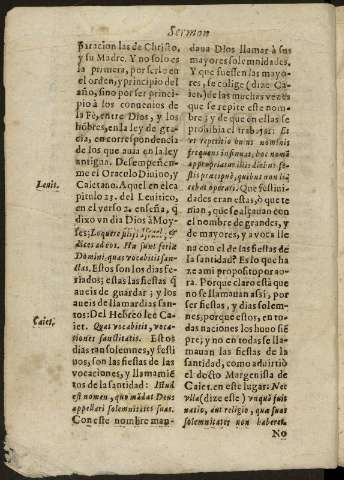 Sermon
paracion las de Christo,
y su Madre. Y no solo es
la primera, por serlo en
el orden, y principio del
año, sino por ser princi-
pio à los convenios de
la Fè, entre Dios, y los
hõbres, en la ley de gra-
cia, en correspondencia
de los que auia en la ley
antigua. Desempeñen-
me el Oraculo Diuino, y
Caietano. Aquel en el ca
Leuit.
pitulo 23. del Leuitico,
en el verso 2. enseña, q̃
dixo vn dia Dios à Moy-
ses: Loquere filijs Israel, &
dices ad eos. Hæ sunt feriæ
Domini, quas vocabitis san-
ctas. Estos son los dias fe-
riados; estas las fiestas q̃
aueis de guardar; y los
aueis de llamar dias san-
tos: Del Hebreo lee Ca-
Caiet.
iet. Quas vocabitis, voca-
tiones sanctitatis. Estos
dias tan solemnes, y festi
uos, son las fiestas de las
vocaciones, y llamamiẽ
tos de la santidad: Istud
est nomen, quo mãdat Deus
appellari solemnitates suas.
Con este nombre man-
daua Dios llamar à sus
mayores solemnidades.
Y que fuessen las mayo-
res, se colige (dize Ca-
iet) de las muchas vezes
que se repite este nom-
bre; y de que en ellas se
prohibia el trabajo: Et
ex repetitio huius nominis
frequens insinuat, hoc nomẽ
appropriatum illis diebus fe-
stis præcipuè, quibus non li-
cebat operari. Que festiui-
dades eran estas, ò que te
nian, que se alçauan con
el nombre de grandes, y
de mayores, y a voca lle
na con el de las fiestas de
la santidad? Es lo que ha
ze a mi proposito por ao-
ra. Porque claro està que
no se llamauan assi, por
ser fiestas, y dias solem-
nes; porque estos, en to-
das naciones los huuo siẽ
pre; y no en todas se lla-
mauan las fiestas de la
santidad, como aduirtiò
el docto Margenista de
Caiet. en este lugar: Nec
vlla (dize este) vnquã fuit
natio, aut religio, quæ suas
solemnitates non haberet.
No